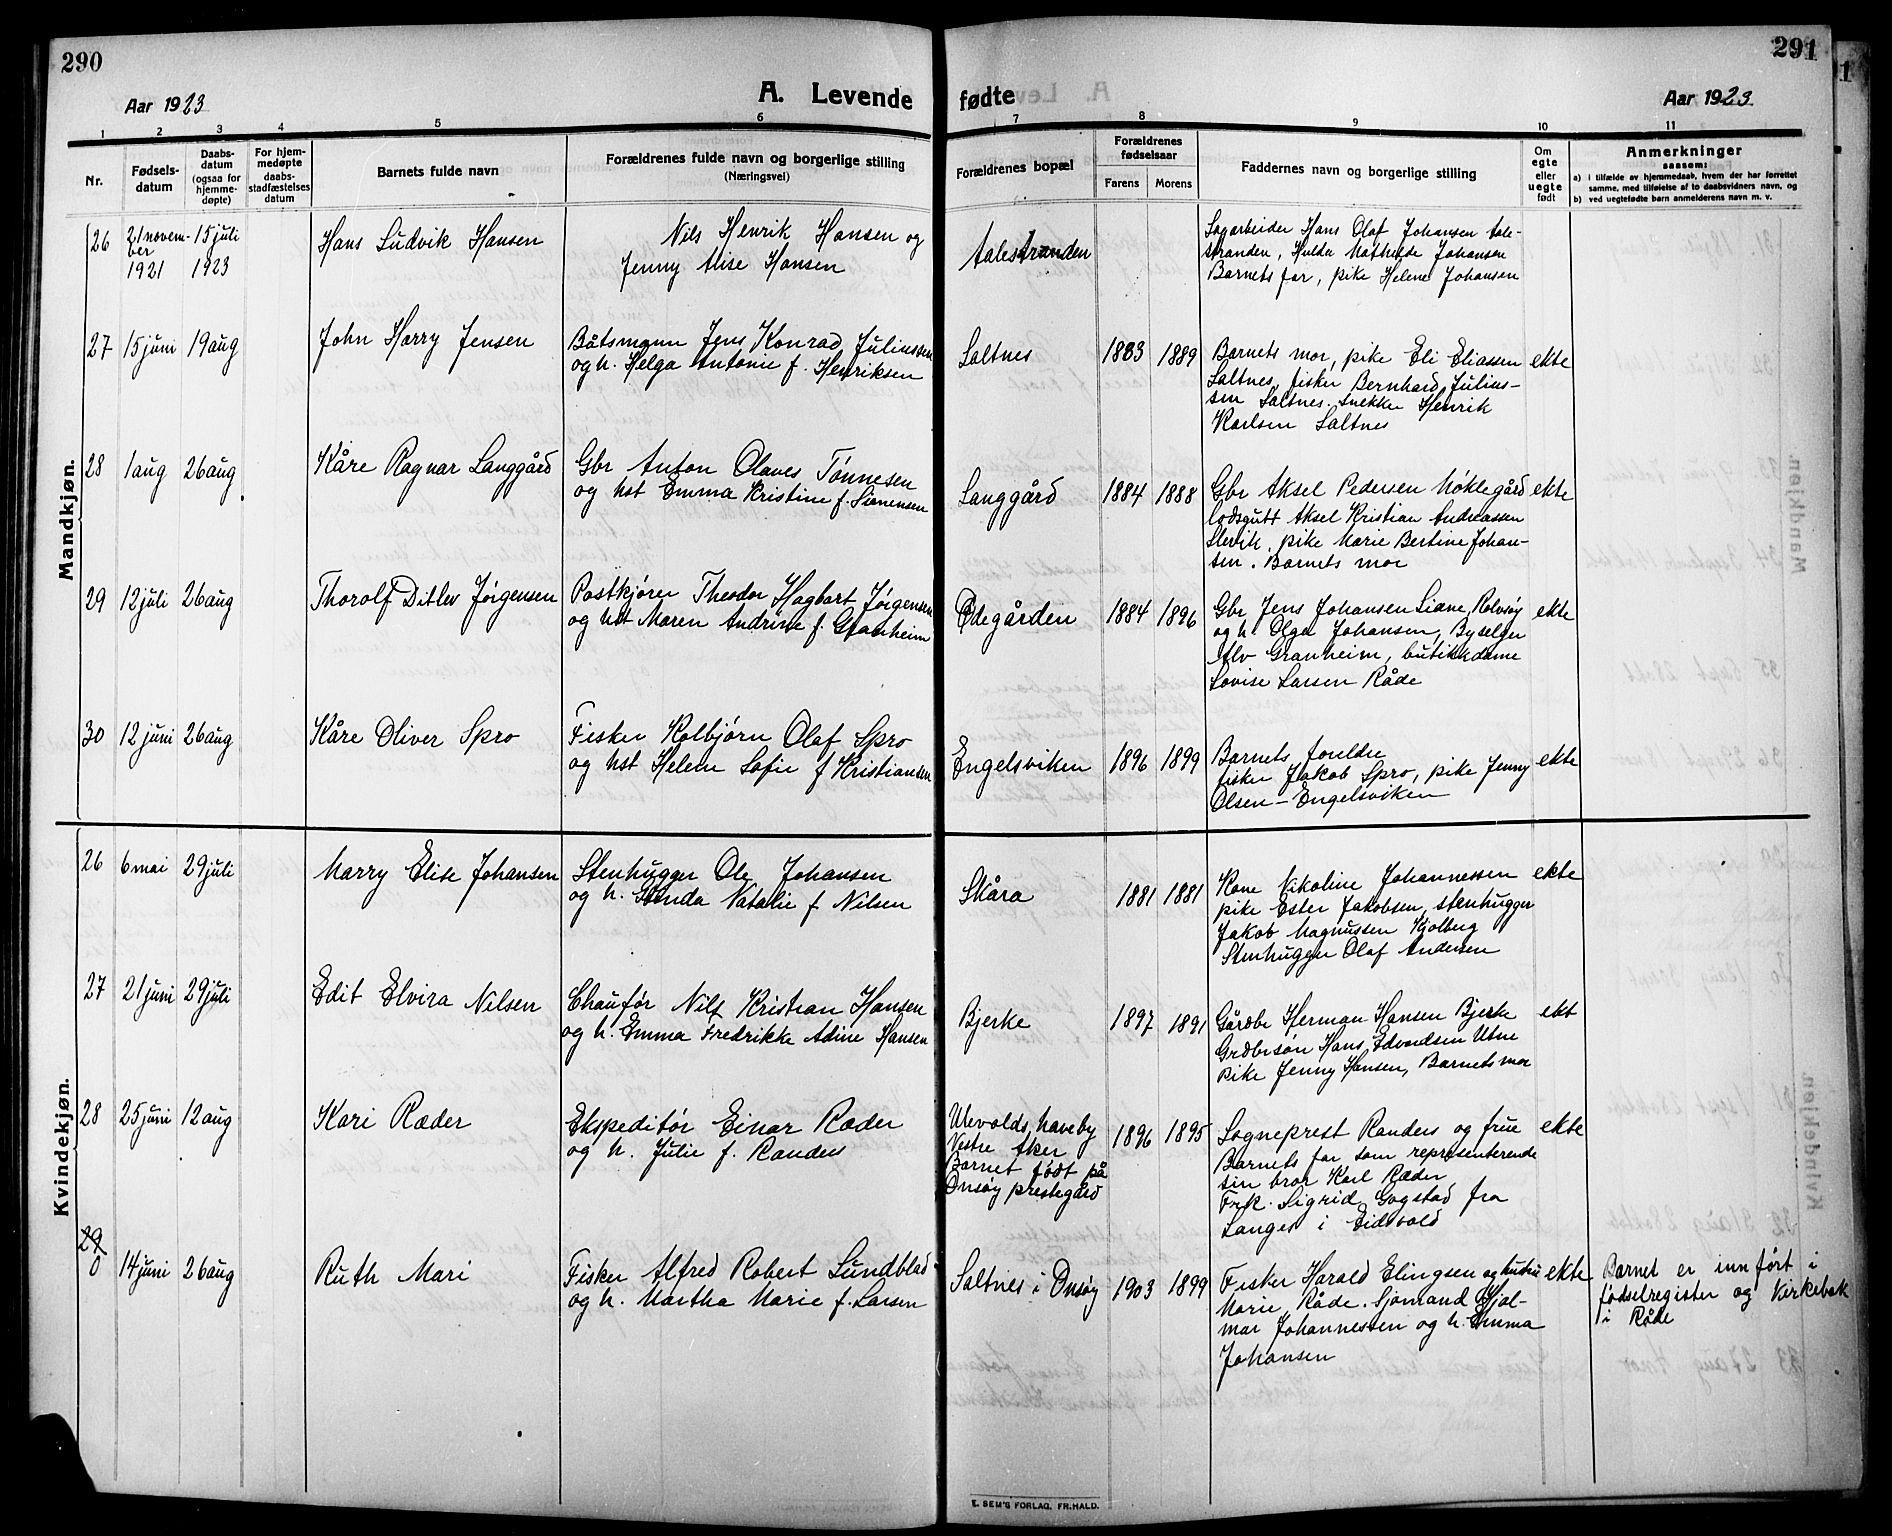 290
291
1
Aar 1923
A. Levende fødte
Aar 1923
1 2 3 4 5 6 7 8 9 10 11
Nr.
Fødsels-
datum
Daabs-
datum
(ogsaa for
hjemme-
døpte)
For hjem-
medøpte
daabs-
stadfæstelses
datum
Barnets fulde navn
Forældrenes fulde navn og borgerlige stilling
(Næringsvei)
Forældrenes bopæl
Forældrenes
fødselsaar
Farens Morens
Faddernes navn og borgerlige stilling
Om
egte
eller
uegte
født
Anmerkninger
saasom:
a) i tilfælde av hjemmedaab, hvem der har forrettet
samme, med tilføielse af to daabsvidners navn, og
b) ved uegtefødte barn anmelderens navn m. v.
Mandkjøn.
26
21 novem-
ber
1921
15 juli
1923
Hans Ludvik Hansen
Nils Henrik Hansen og
Jenny Alise Hansen
Aalestranden
Sagarbeider Hans Olaf Johansen Aale-
stranden, Hulda Mathilde Johansen
Barnets far, pike Helene Johansen
27 15 juni 19 aug
John Harry Jensen
Båtsmann Jens Konrad Juliussen
og h. Helga Antonie f. Henriksen
Saltnes
1883 1889
Barnets mor, pike Eli Eliassen
Saltnes, fisker Bernhard Julius-
sen Saltnes. Snekker Henrik
Karlsen Saltnes
ekte
28 1 aug 26 aug
Kåre Ragnar Langgård
Gbr Anton Olaves Tønnesen
og hst Emma Kristine f. Simensen
Langgård
1884 1888
Gbr Aksel Pedersen Møklegård
lodsgutt Aksel Kristian Andreassen
Slevik, pike Marie Bertine Johan-
sen. Barnets mor
ekte
29 12 juli 26 aug
Thorolf Ditlev Jørgensen
Postkjører Theodor Hagbart Jørgensen
og hst Maren Andrine f. Granheim
Ødegården
1884 1896
Gbr Jens Johansen Liane, Rolvsøy
og h. Olga Johansen, Byselger
Alv Granheim, butikkdame
Lovise Larsen Råde
ekte
30 12 juni 26 aug
Kåre Oliver Spro
Fisker Kolbjørn Olaf Spro
og hst Helene Sofie f Kristiansen
Engelsviken
1896 1899
Barnets foreldre
fisker Jakob Spro, pike Jenny
Olsen - Engelsviken
ekte
Kvindekjøn.
26 6 mai 29 juli
Marry Elise Johansen
Stenhugger Ole Johansen
og h. Gunda Natalie f Nilsen
Skåra
1881 1881
Kone Nikoline Johannessen
pike Ester Jakobsen, stenhugger
Jakob Magnussen Kjølberg
Stenhugger Olaf Andersen
ekte
27 21 juni 29 juli
Edit Elvira Nilsen
Chaufør Nils Kristian Hansen
og h. Emma Fredrikke Adine Hansen
Bjerke
1897 1891
Gårdbr Herman Hansen Bjerke
Grdbrsøn Hans Edvardsen Utne
Pike Jenny Hansen, Barnets mor
ekt
28 25 juni 12 aug
Kari Ræder
Ekspeditør Einar Ræder
og h. Julie f. Randers
Ulevolds haveby
Vestre Aker
Barnet født på
Onsøy prestegård
1896 1895
Sogneprest Randers og frue
Barnets far som representerende
sin bror Karl Ræder
Frk. Sigrid Gogstad fra
Langes i Eidsvold
ekte
29
0 14 juni 26 aug
Ruth Mari
Fisker Alfred Robert Lundblad
og h. Martha Marie f. Larsen
Saltnes i Onsøy
1903 1899
Fisker Harald Elingsen og hustru
Marie, Råde. Sjømand Hjal-
mar Johannessen og h. Emma
Johansen
ekte
Barnet er innført i
fødselregister og Kirkebok
i Råde
E. SEM'S FORLAG, FR.HALD.